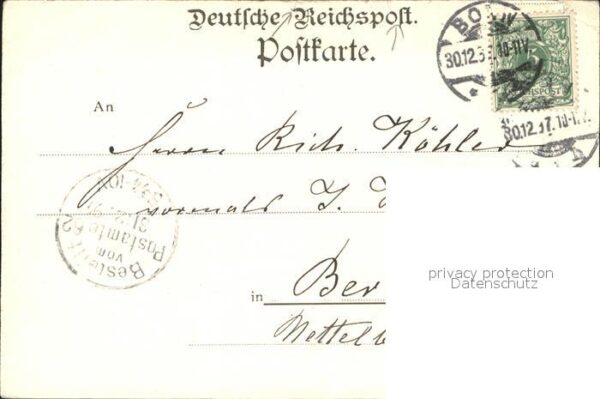 Deutsche Reichspost.
Postkarte.
BONN
30.12.97. 10-11V.
REICHSPOST
30.12.97. 10-11V.
An
Herrn Rich. Köhler
vormals J.
Bestellt
vom
Postamte 62
31/12
in Ber
privacy protection
Datenschutz